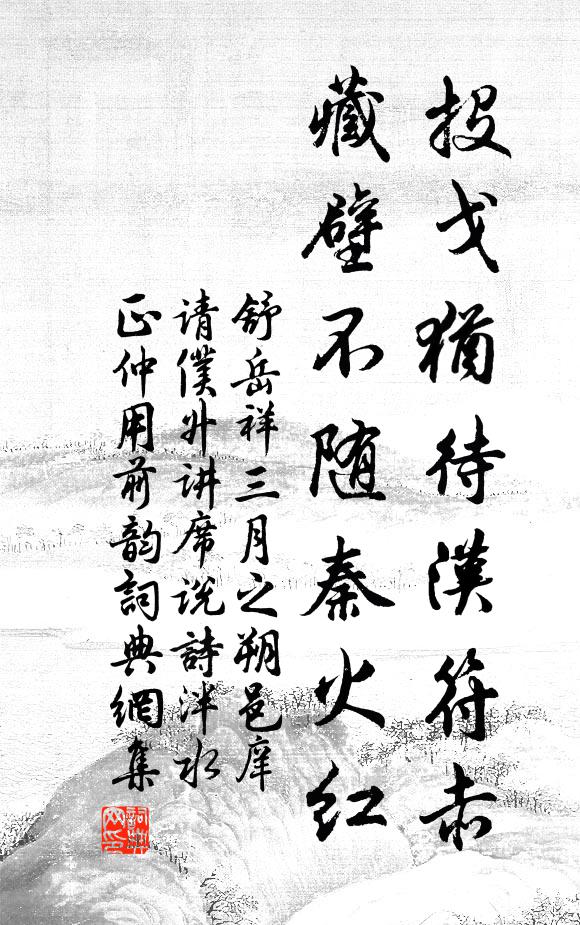 投戈猶待漢符赤
藏壁不随秦火红
舒岳祥三月之朔邑庠
请僕升讲席说詩泮水
正仲用前韵詞典網集